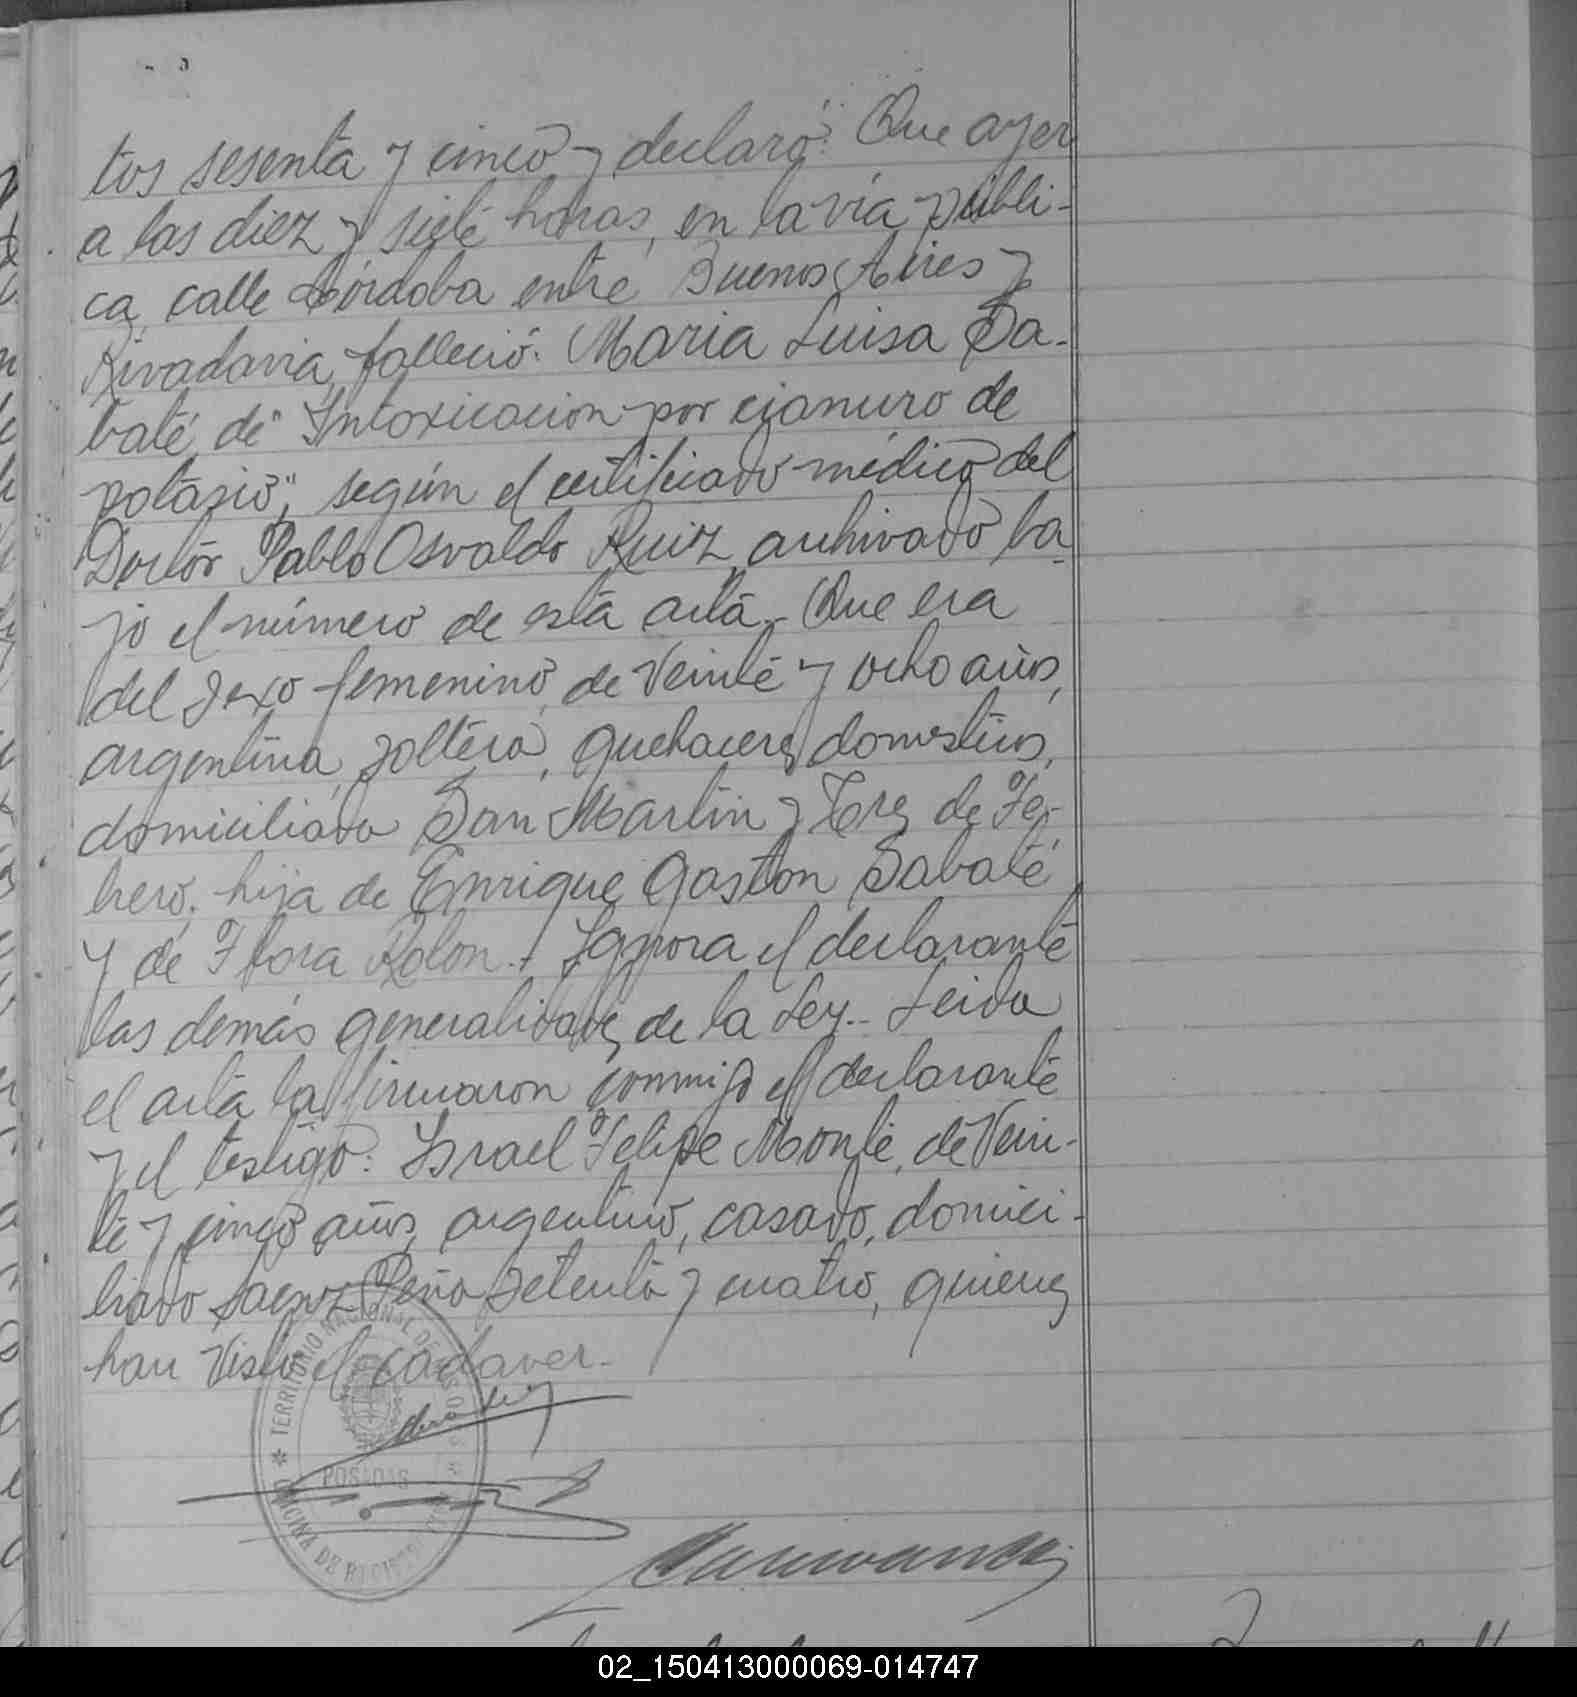 tos sesenta y cinco y declaró: Que ayer
a las diez y siete horas, en la vía públi-
ca calle Córdoba entre Buenos Aires y
Rivadavia, falleció: Maria Luisa Sa-
baté, de "Intoxicacion por cianuro de
potasio", según el certificado médico del
Doctor Pablo Osvaldo Ruiz, archivado ba-
jo el número de esta acta. Que era
del sexo femenino, de veinte y ocho años,
argentina, soltera, quehaceres domesticos,
domiciliada San Martin y Tres de Fe-
brero, hija de Enrique Gaston Sabaté
y de Flora Rolon.- Ignora el declarante
las demás generalidades de la Ley.- Leida
el acta la firmaron conmigo el declarante
y el testigo: Israel Felipe Monte, de Vein-
te y cinco años, argentino, casado, domici-
liado Saenz Peña setenta y cuatro, quienes
han visto el cadaver.-
TERRITORIO NACIONAL DE
POSADAS
OFICINA DE
02_150413000069-014747